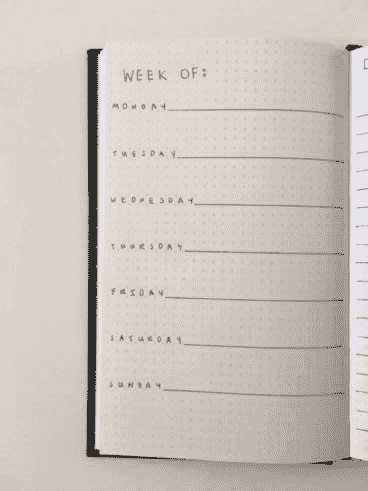 WEEK OF:
MONDAY
TUESDAY
WEDNESDAY
THURSDAY
FRIDAY
SATURDAY
SUNDAY